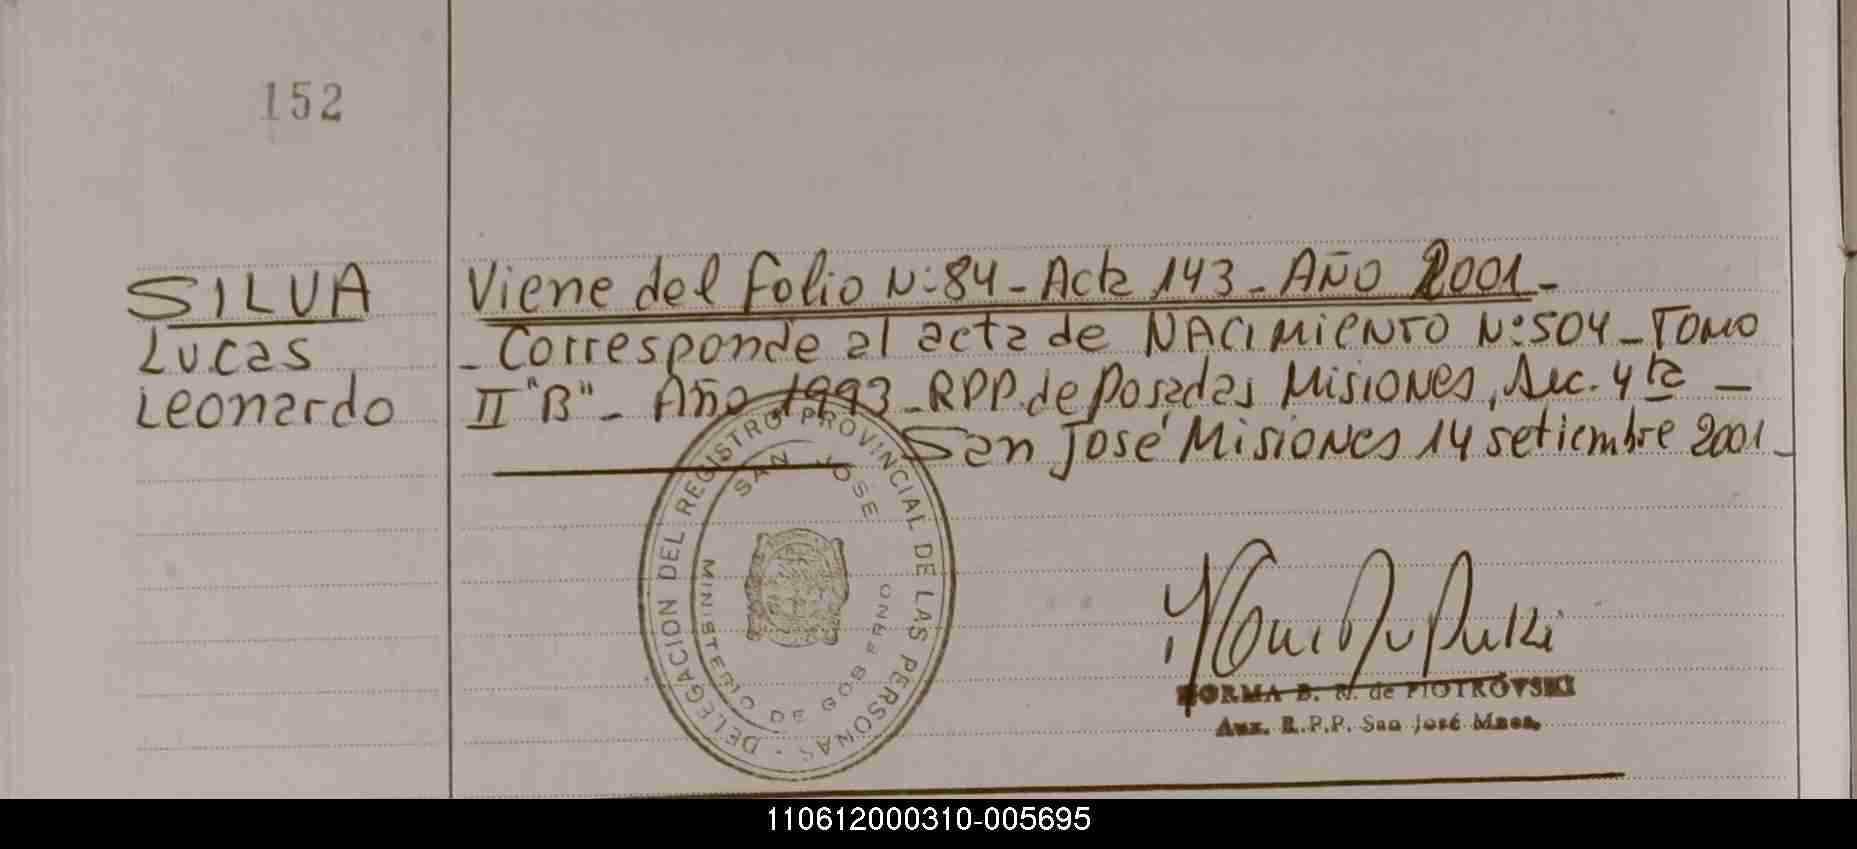 152
SILVA
Lucas
Leonardo
Viene del Folio N:84 - Acta 143 - AÑO 2001 -
- Corresponde al acta de NACIMIENTO Nº504 - TOMO
II "B" - Año 1993 - RPP. de Posadas Misiones, Sec. 4ta -
San José Misiones 14 setiembre 2001 -
DELEGACION DEL REGISTRO PROVINCIAL DE LAS PERSONAS -
SAN JOSE
MINISTERIO DE GOBIERNO
NORMA B. N. de PIOTROVSKI
Aux. R.P.P. San José Mnes.
110612000310-005695